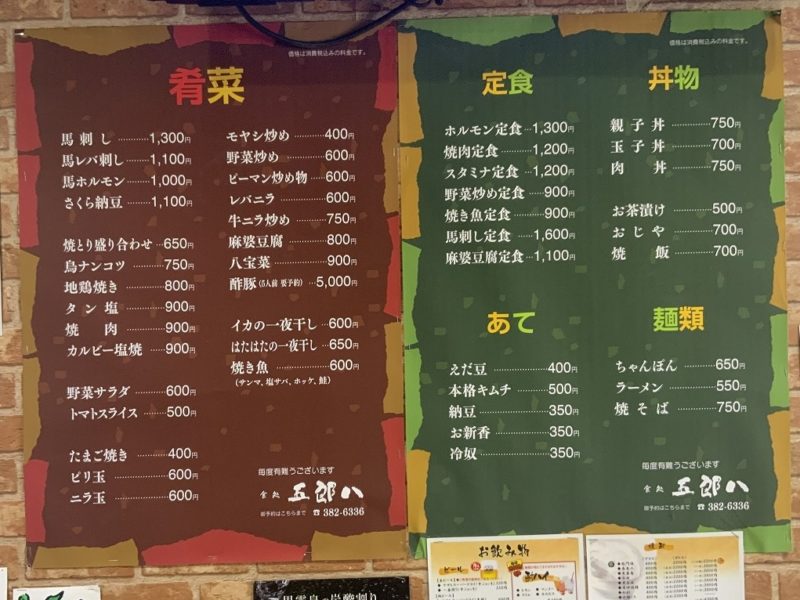 価格は消費税込みの料金です。
肴菜
馬刺し 1,300円
馬レバ刺し 1,100円
馬ホルモン 1,000円
さくら納豆 1,100円
焼とり盛り合わせ 650円
鳥ナンコツ 750円
地鶏焼き 800円
タン塩 900円
焼肉 900円
カルビー塩焼 900円
野菜サラダ 600円
トマトスライス 500円
たまご焼き 400円
ピリ玉 600円
ニラ玉 600円
モヤシ炒め 400円
野菜炒め 600円
ピーマン炒め物 600円
レバニラ 600円
牛ニラ炒め 750円
麻婆豆腐 800円
八宝菜 900円
酢豚(5人前 要予約) 5,000円
イカの一夜干し 600円
はたはたの一夜干し 650円
焼き魚 600円
(サンマ、塩サバ、ホッケ、鮭)
毎度有難うございます
食処 五郎八
御予約はこちらまで ☎382-6336
価格は消費税込みの料金です。
定食
ホルモン定食 1,300円
焼肉定食 1,200円
スタミナ定食 1,200円
野菜炒め定食 900円
焼き魚定食 900円
馬刺し定食 1,600円
麻婆豆腐定食 1,100円
丼物
親子丼 750円
玉子丼 700円
肉丼 750円
お茶漬け 500円
おじや 700円
焼飯 700円
あて
えだ豆 400円
本格キムチ 500円
納豆 350円
お新香 350円
冷奴 350円
麺類
ちゃんぽん 650円
ラーメン 550円
焼そば 750円
毎度有難うございます
食処 五郎八
御予約はこちらまで ☎382-6336
お飲み物
ビール